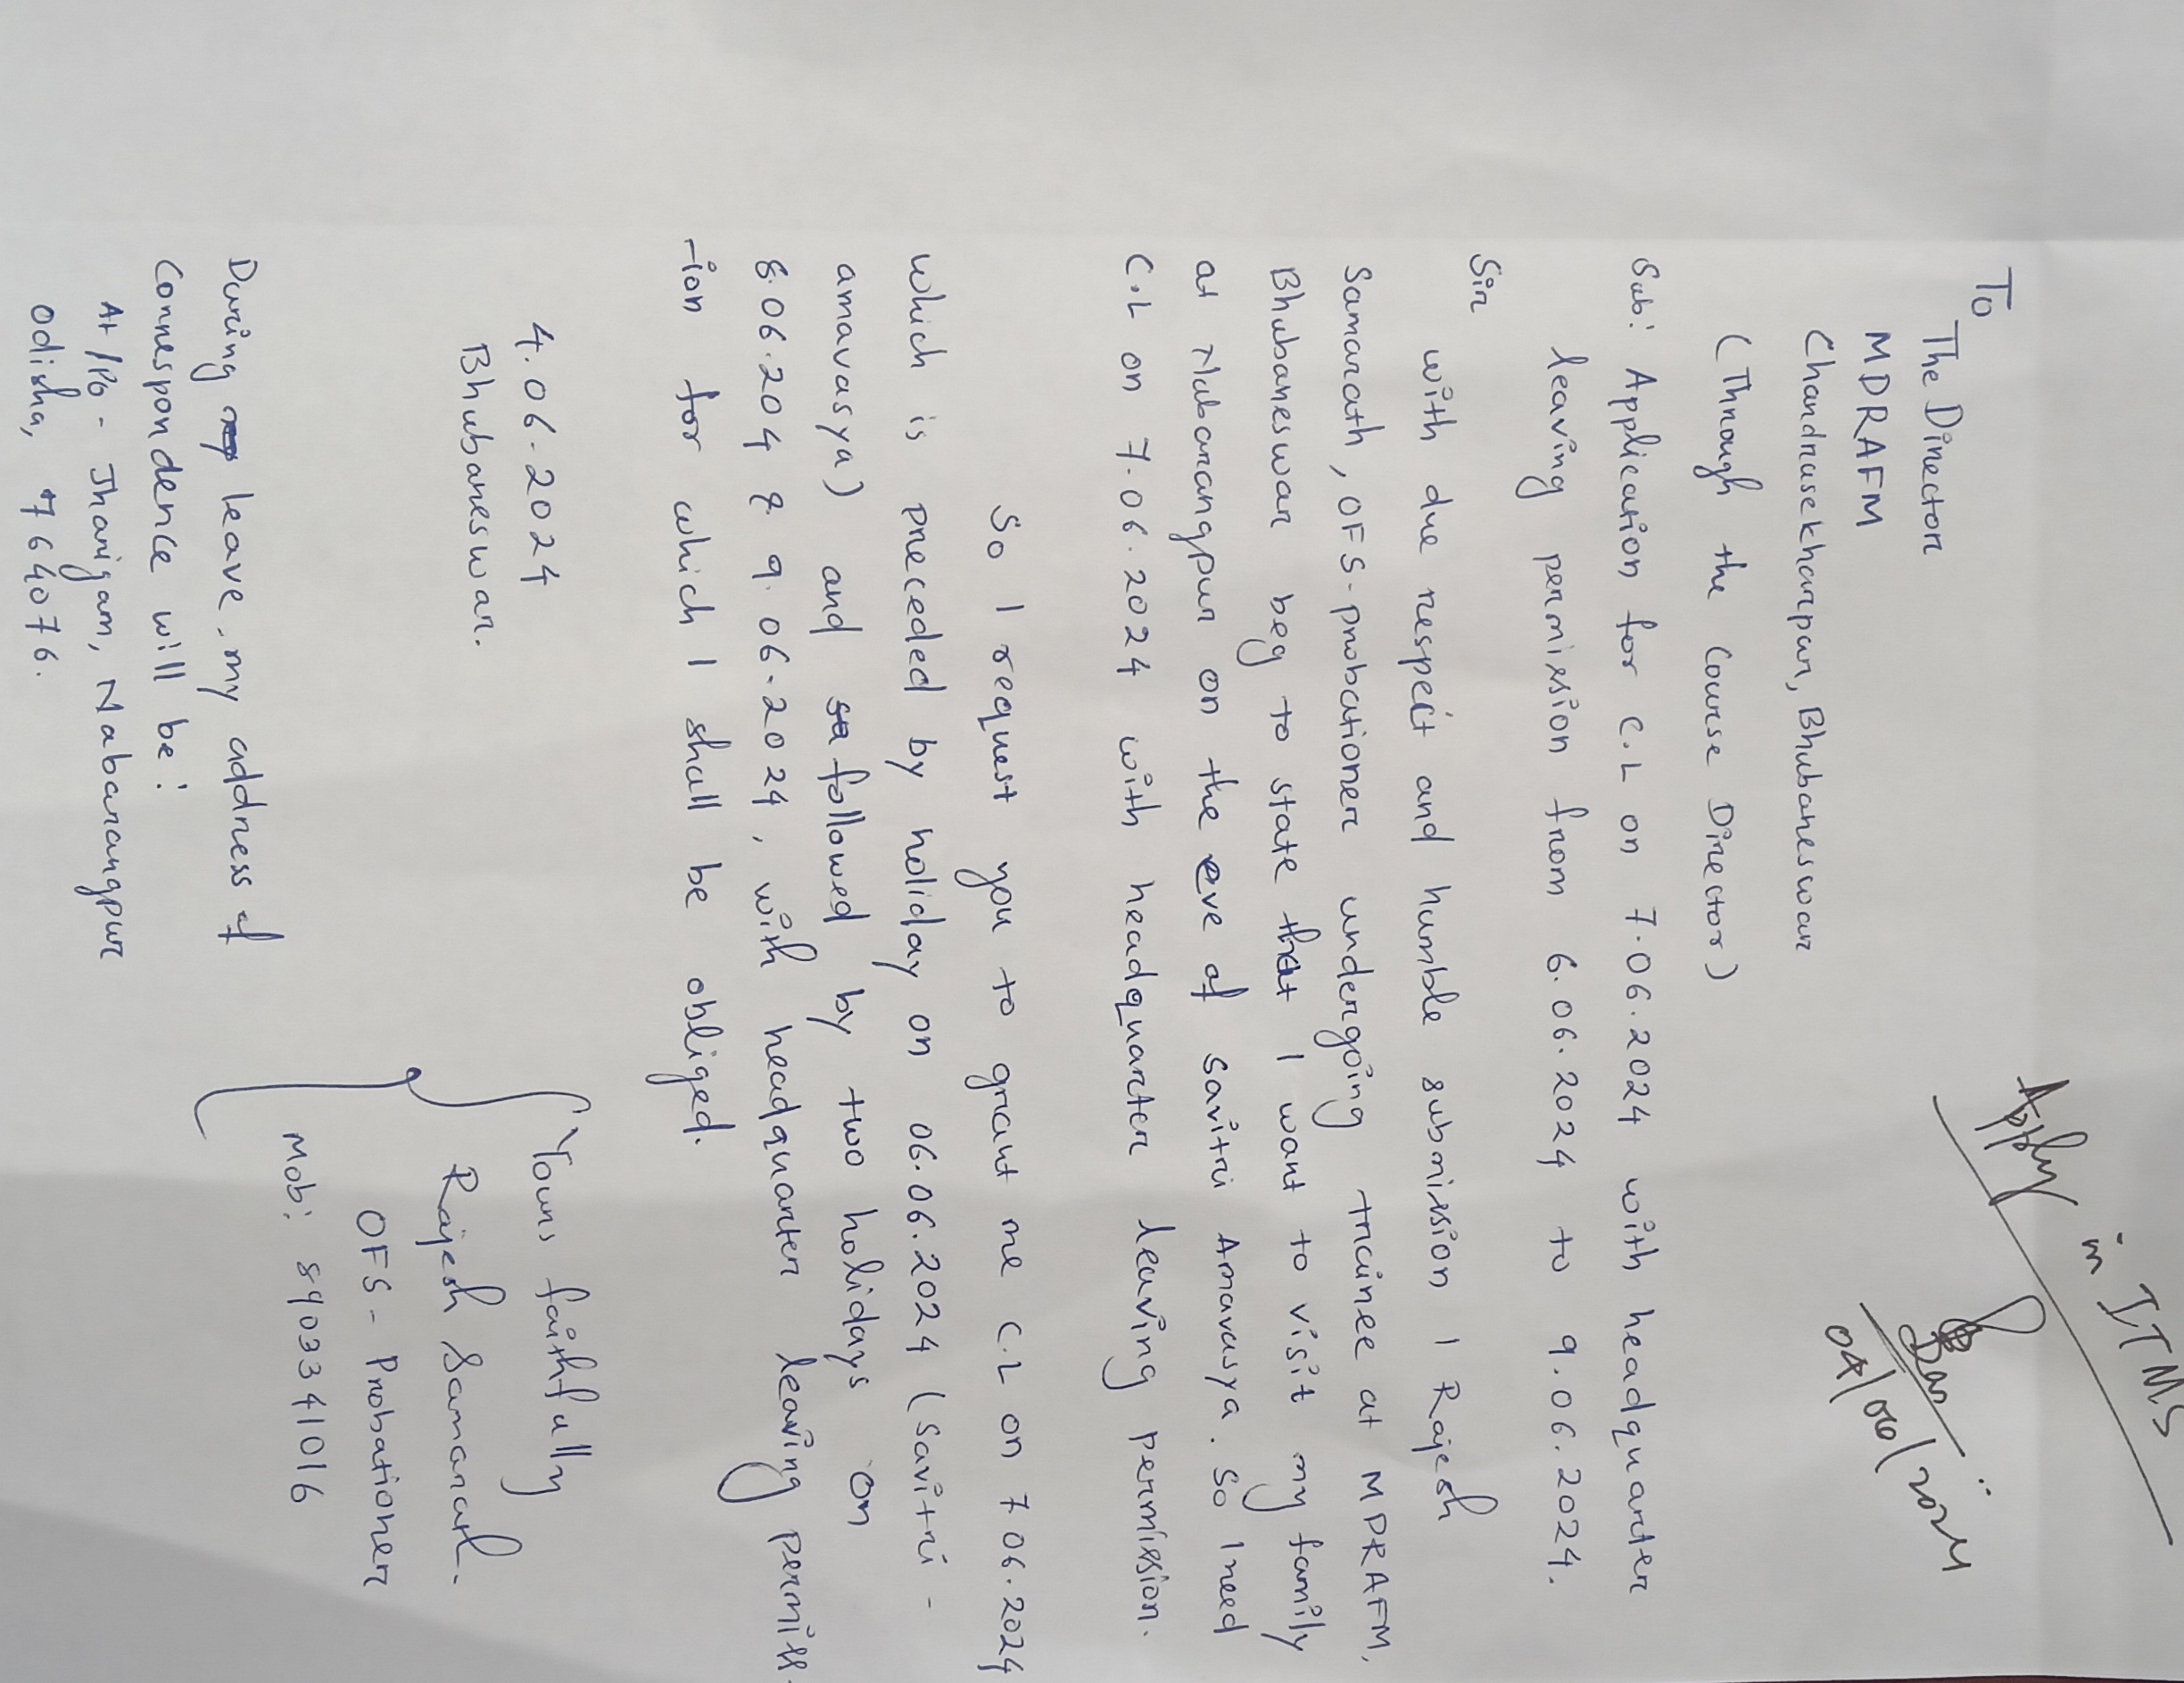 To
The Director
MDRAFM
Chandrasekharpur, Bhubaneswar
(Through the Course Director)
Apply in ITMS
04/06/2024
Sub: Application for C.L on 7.06.2024 with headquarter
leaving permission from 6.06.2024 to 9.06.2024.
Sir
with due respect and humble submission I Rajesh
Samarath, OFS-probationer undergoing trainee at MDRAFM,
Bhubaneswar beg to state that I want to visit my family
at Nabarangpur on the eve of Savitri Amavasya. So I need
C.L on 7.06.2024 with headquarter leaving permission.
So I request you to grant me C.L on 7.06.2024
which is preceded by holiday on 06.06.2024 (Savitri-
amavasya) and followed by two holidays on
8.06.204 & 9.06.2024, with headquarter leaving permiss-
-ion for which I shall be obliged.
4.06.2024
Bhubaneswar.
Yours faithfully
Rajesh Samarath.
OFS-Probationer
Mob: 8903341016
During leave, my address of
Correspondence will be:
At/Po- Jharigam, Nabarangpur
Odisha, 764076.